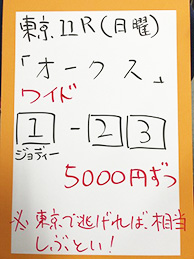 東京11R(日曜)
「オークス」
ワイド
1-23
ジョディー
5000円ずつ
※東京で逃げれば、相当
しぶとい!